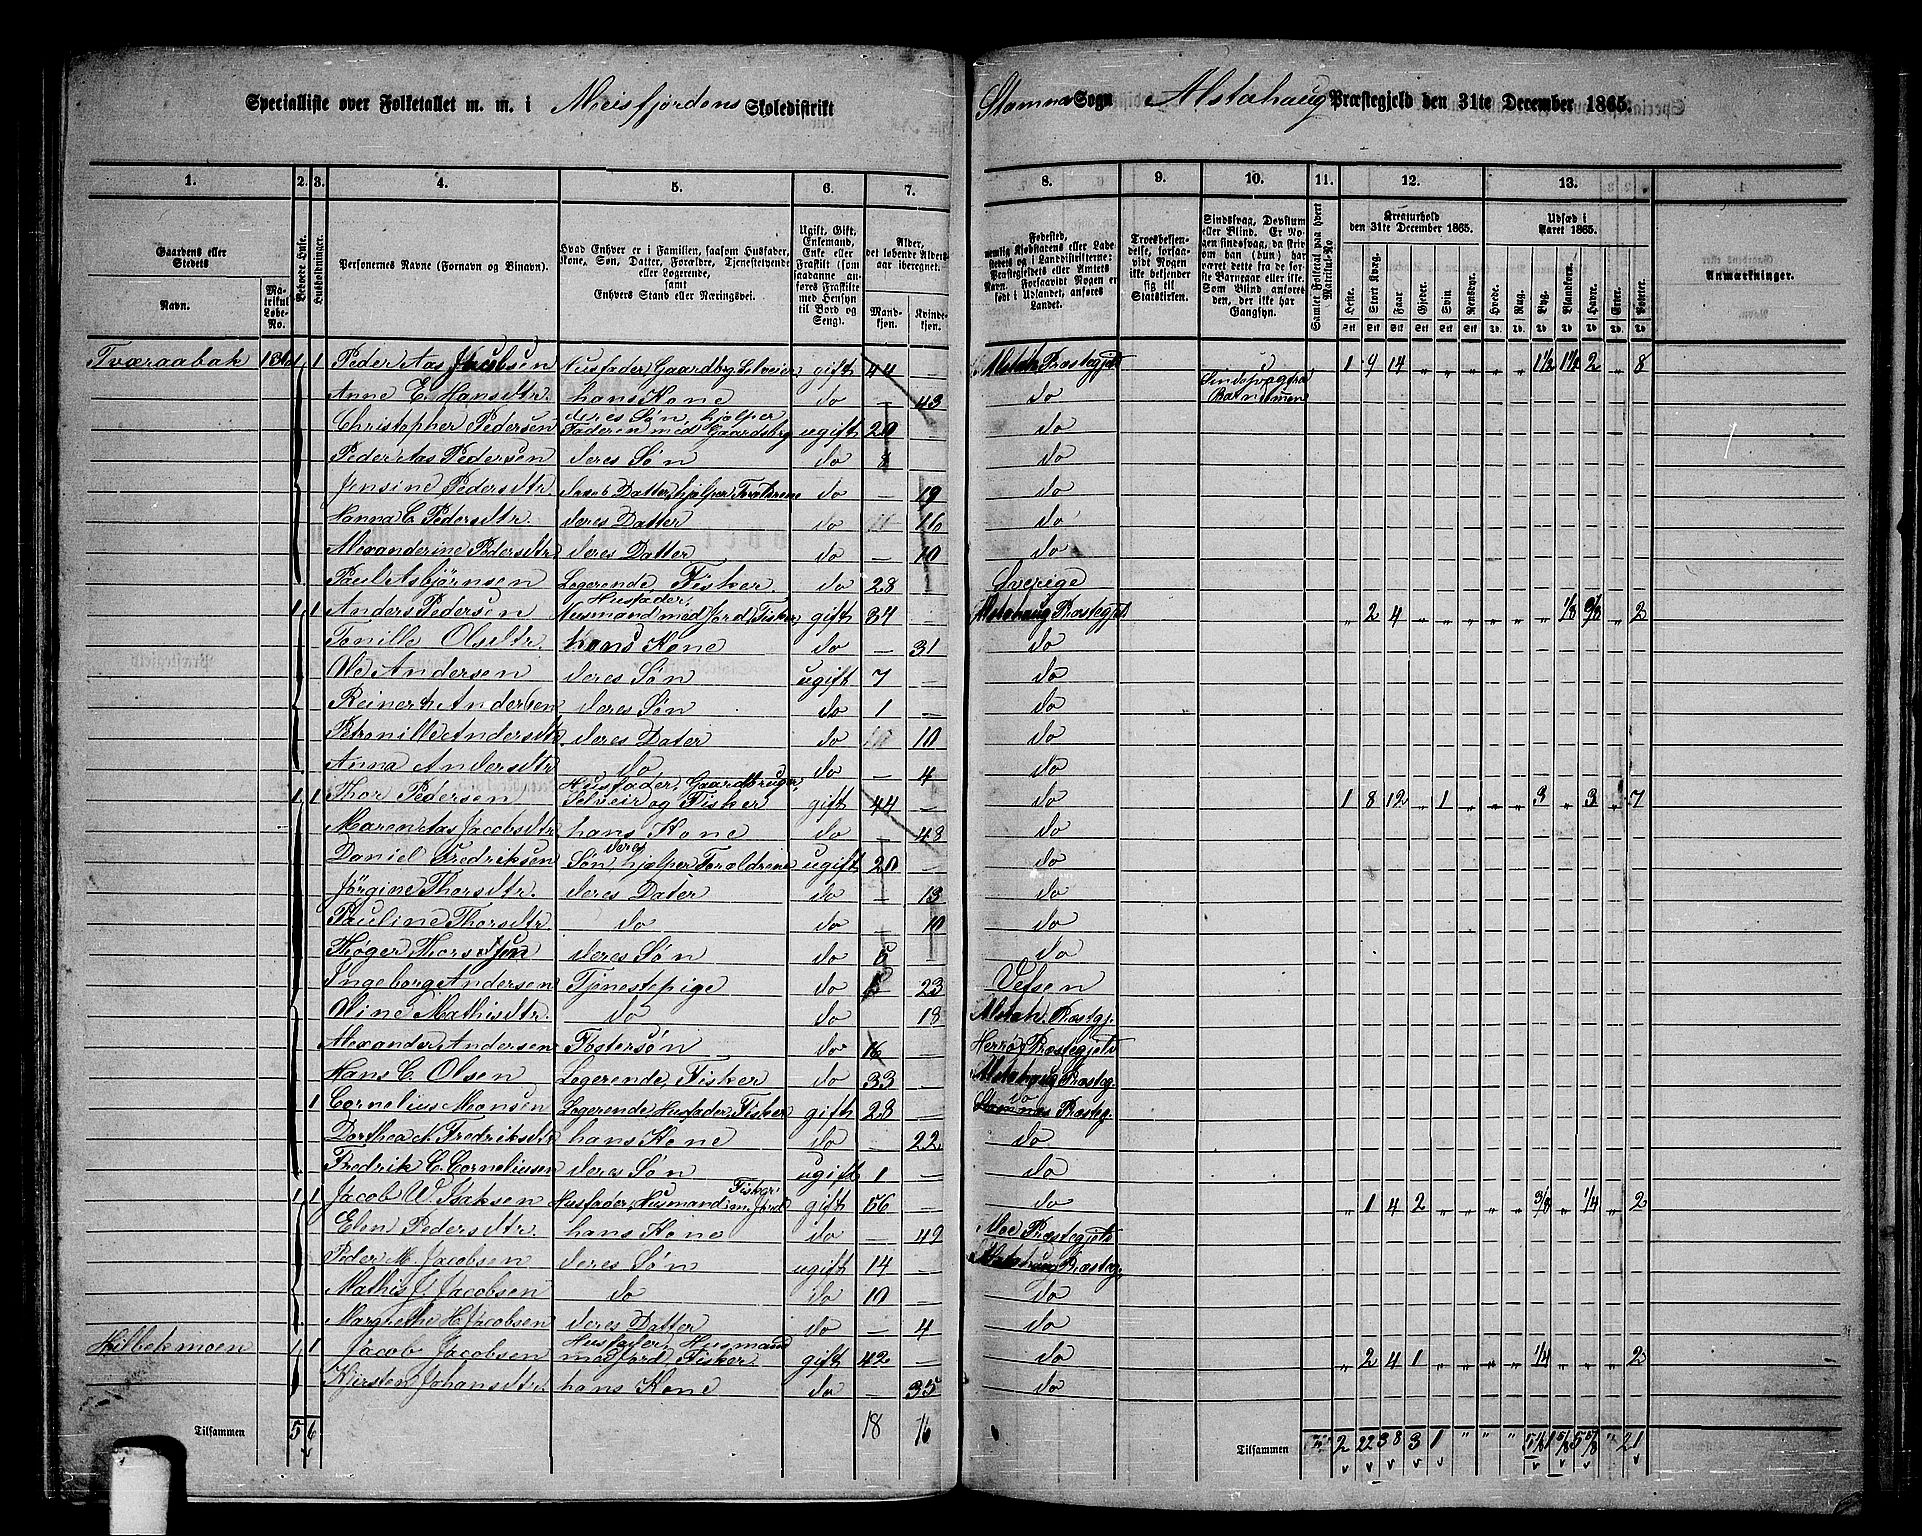 Specialliste over Folketallet m. m. i Meisfjordens Skoledistrikt Stamnæs Sogn Alstahaug Præstegjeld den 31te December 1865.
1. 2. 3. 4. 5. 6. 7. 8. 9. 10. 11. 12. 13.
Gaardens eller Stedets Navn. Matrikul Løbe-No. Beboede Huse. Husholdninger. Personernes Navne (Fornavn og Tilnavn).
Hvad Enhver er i Familien, saasom Husfader, Kone, Søn, Datter, Forældre, Tjenestetyende eller Logerende, samt Enhvers Stand eller Næringsvei.
Ugift, Gift, Enkemand, Enke eller Fraskilt
Alder, det løbende Alders-aar iberegnet. Mandkjøn. Kvindekjøn.
Fødested,
Troesbekjendelse, forsaavidt Nogen ikke bekjender sig til Statskirken.
Sindssvag, Døvstum eller Blind.
Samlet Folketal paa hvert Matrikul-No
Kreaturhold den 31te December 1865. Heste. Stort Kvæg. Faar. Gjeder. Svin. Rensdyr.
Udsæd i Aaret 1865. Hvede. Rug. Byg. Blandkorn. Havre. Erter. Poteter.
Anmærkninger.
Tværaabak 1 1 Peder Aas Jacobsen Husfader, Gaardbr. Selveier gift 44 Alstah. Præstegjeld 1 9 14 „ „ „ „ „ 1½ 1½ 2 „ 8
Anne E. Hansdtr. hans Kone do — 43 do
Christopher Pedersen deres Søn, hjelper Faderen med Gaardsbrg ugift 20 — do
Peder Aas Pedersen deres Søn do 8 — do
Jensine Pedersdtr. deres Datter, hjelper Forældrene do — 19 do
Hanna C. Pedersdtr. deres Datter do 16 do
Alexanderine Pedersdtr deres Datter do — 10 do
Paul Asbjørnsen Logerende Fisker. do 28 — Sverige
1 1 Anders Pedersen Husfader, Husmand med Jord, Fisker gift 34 — Alstahaug Præstegjel „ 2 4 „ „ „ „ „ „ 1/8 3/8 „ 2
Tonille Olsdtr. hans Kone do — 31 do
Ole Andersen deres Søn ugift 7 — do
Reinert Andersen deres Søn do 1 — do
Petronille Andersdtr. deres Dater do 10 do
Anna Andersdtr do do — 4 do
1 1 Thor Pedersen Husfader, Gaardbruger, Selveir og Fisker gift 44 — do 1 8 12 „ 1 „ „ „ 3 „ 3 „ 7
Maren Aas Jacobsdtr. hans Kone do — 48 do
Daniel Fredriksen deres Søn, hjælper Forældrene ugift 20 — do
Jørgine Thorsdtr. deres Dater do — 13 do
Pauline Thorsdtr do do — 10 do
Høger Thorssøn deres Søn do 5 — do
Ingeborg Andersen Tjenestepige do — 23 Vefsen
Oline Mathisdtr. do do — 18 Alstah. Præstgj.
Alexander Andersen Fostersøn do 16 — Herrø Præstegjeld
Hans C. Olsen Logerende, Fisker do 33 — Alstahaug Præsteg.
1 Cornelius Monsen Logerende, Husfader, Fisker gift 28 — do Præsteg.
Dorthea N. Fredriksdtr hans Kone do — 22 do
Fredrik C. Corneliusen deres Søn ugift 1 — do
1 1 Jacob W. Isaksen Husfader, Husmand m. Jord Fisker gift 56 — do „ 1 4 2 „ „ „ „ 3/8 „ 1/4 „ 2
Elen Pedersdtr. hans Kone do — 49 Moe Præstegjeld
Peder M. Jacobsen deres Søn ugift 14 — Alstahaug Præsteg.
Mathis J. Jacobsen do do 10 — do
Margrethe H. Jacobsen deres Datter do — 4 do
Hilbekmoen 1 1 Jacob Jacobsen Husfader, Husmand med Jord, Fisker gift 42 — do „ 2 4 1 „ „ „ „ 1/4 „ „ „ 2
Kjersten Johansdtr. hans Kone do — 35 do
Tilsammen 5 6 18 16 Tilsammen 2 22 38 3 1 „ „ „ 21